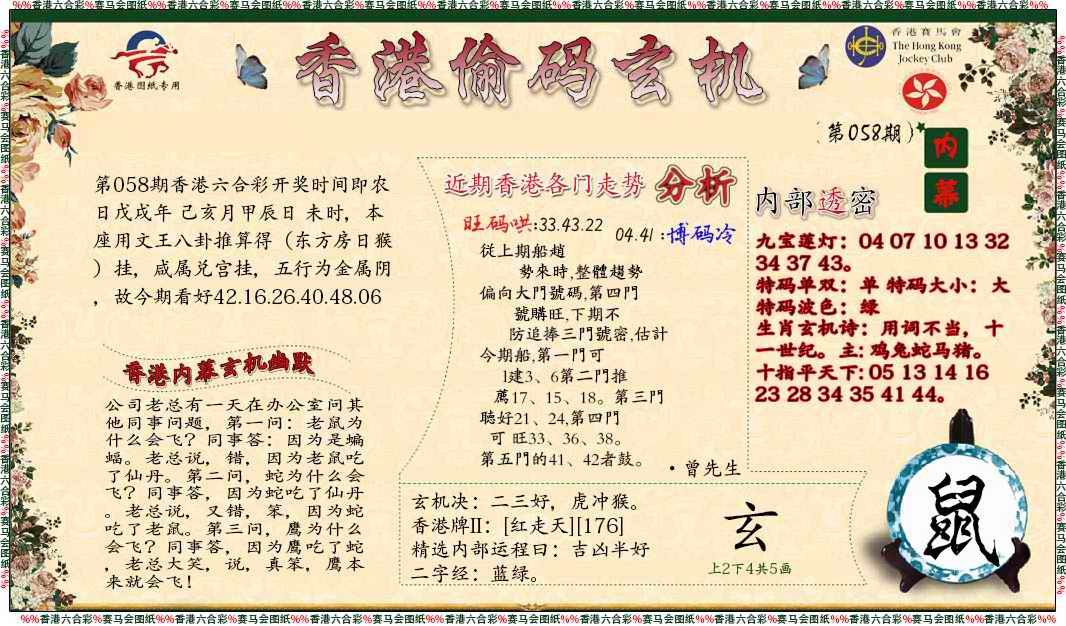 %%香港六合彩%赛马会图纸%%香港六合彩%赛马会图纸%%香港六合彩%赛马会图纸%%香港六合彩%赛马会图纸%%香港六合彩%赛马会图纸%%香港六合彩%赛马会图纸%%香港六合彩%%
香港图纸专用
香港偷码玄机
香港賽馬會
The Hong Kong
Jockey Club
(第058期)
内
幕
第058期香港六合彩开奖时间即农
日戊戌年 己亥月甲辰日 未时，本
座用文王八卦推算得（东方房日猴
）挂，咸属兑宫挂，五行为金属阴
，故今期看好42.16.26.40.48.06
香港内幕玄机幽默
公司老总有一天在办公室问其
他同事问题，第一问：老鼠为
什么会飞？同事答：因为是蝙
蝠。老总说，错，因为老鼠吃
了仙丹。第二问，蛇为什么会
飞？同事答，因为蛇吃了仙丹
。老总说，又错，笨，因为蛇
吃了老鼠。第三问，鹰为什么
会飞？同事答，因为鹰吃了蛇
，老总大笑，说，真笨，鹰本
来就会飞！
近期香港各门走势 分析
旺码哄:33.43.22
04.41 :博码冷
從上期船趙
勢來時,整體趨勢
偏向大門號碼,第四門
號購旺,下期不
防追捧三門號密,估計
今期船,第一門可
1建3、6第二門推
薦17、15、18。第三門
聴好21、24,第四門
可 旺33、36、38。
第五門的41、42者鼓。
·曾先生
玄机决：二三好，虎冲猴。
香港牌II：[红走天][176]
精选内部运程曰：吉凶半好
二字经：蓝绿。
玄
上2下4共5画
内部透密
九宝莲灯：04 07 10 13 32
34 37 43。
特码单双：单 特码大小：大
特码波色：绿
生肖玄机诗：用词不当，十
一世纪。主: 鸡兔蛇马猪。
十指平天下: 05 13 14 16
23 28 34 35 41 44。
鼠
%%香港六合彩%赛马会图纸%%香港六合彩%赛马会图纸%%香港六合彩%赛马会图纸%%香港六合彩%赛马会图纸%%香港六合彩%赛马会图纸%%香港六合彩%赛马会图纸%%香港六合彩%%